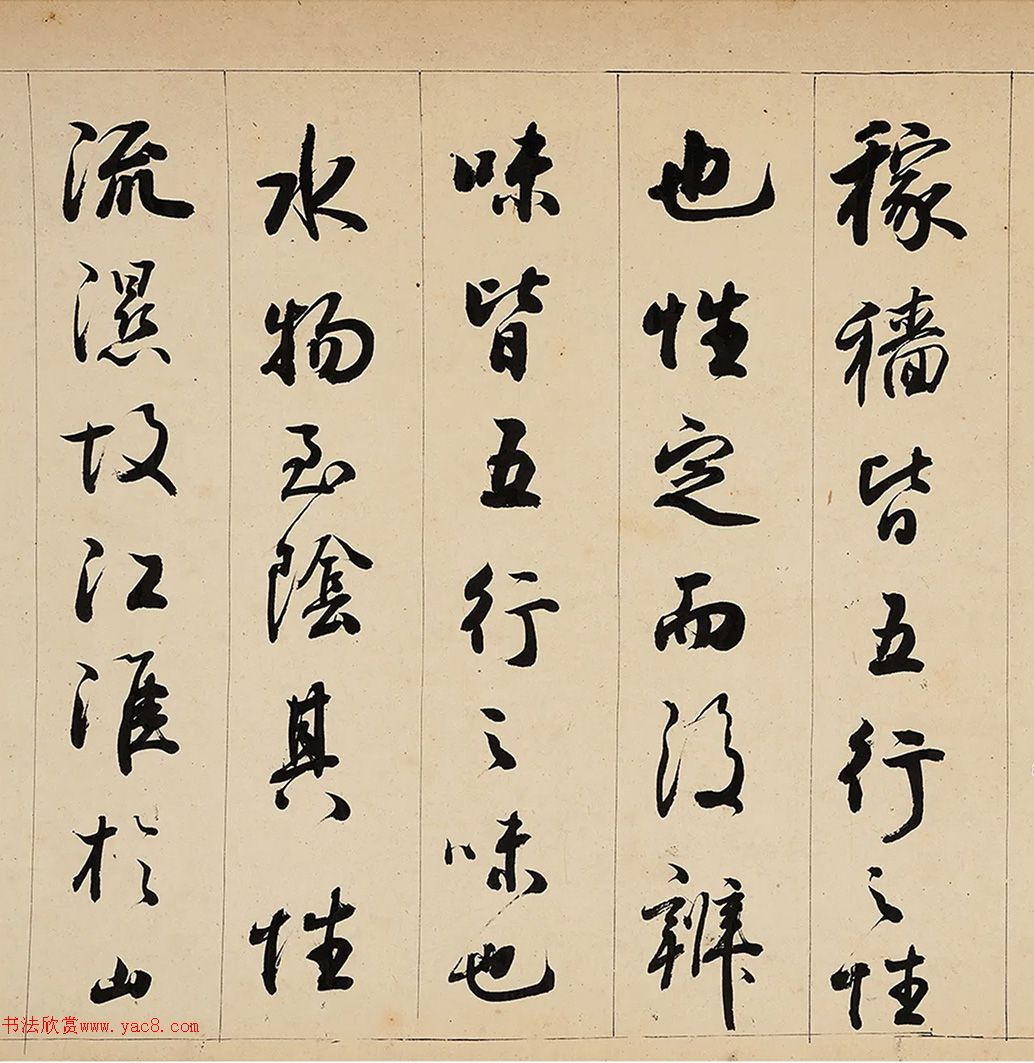 稼穡皆五行之性
也性定而後辨
味皆五行之味也
水物至陰其性
流濕故江淮於山
书法欣赏www.yac8.com